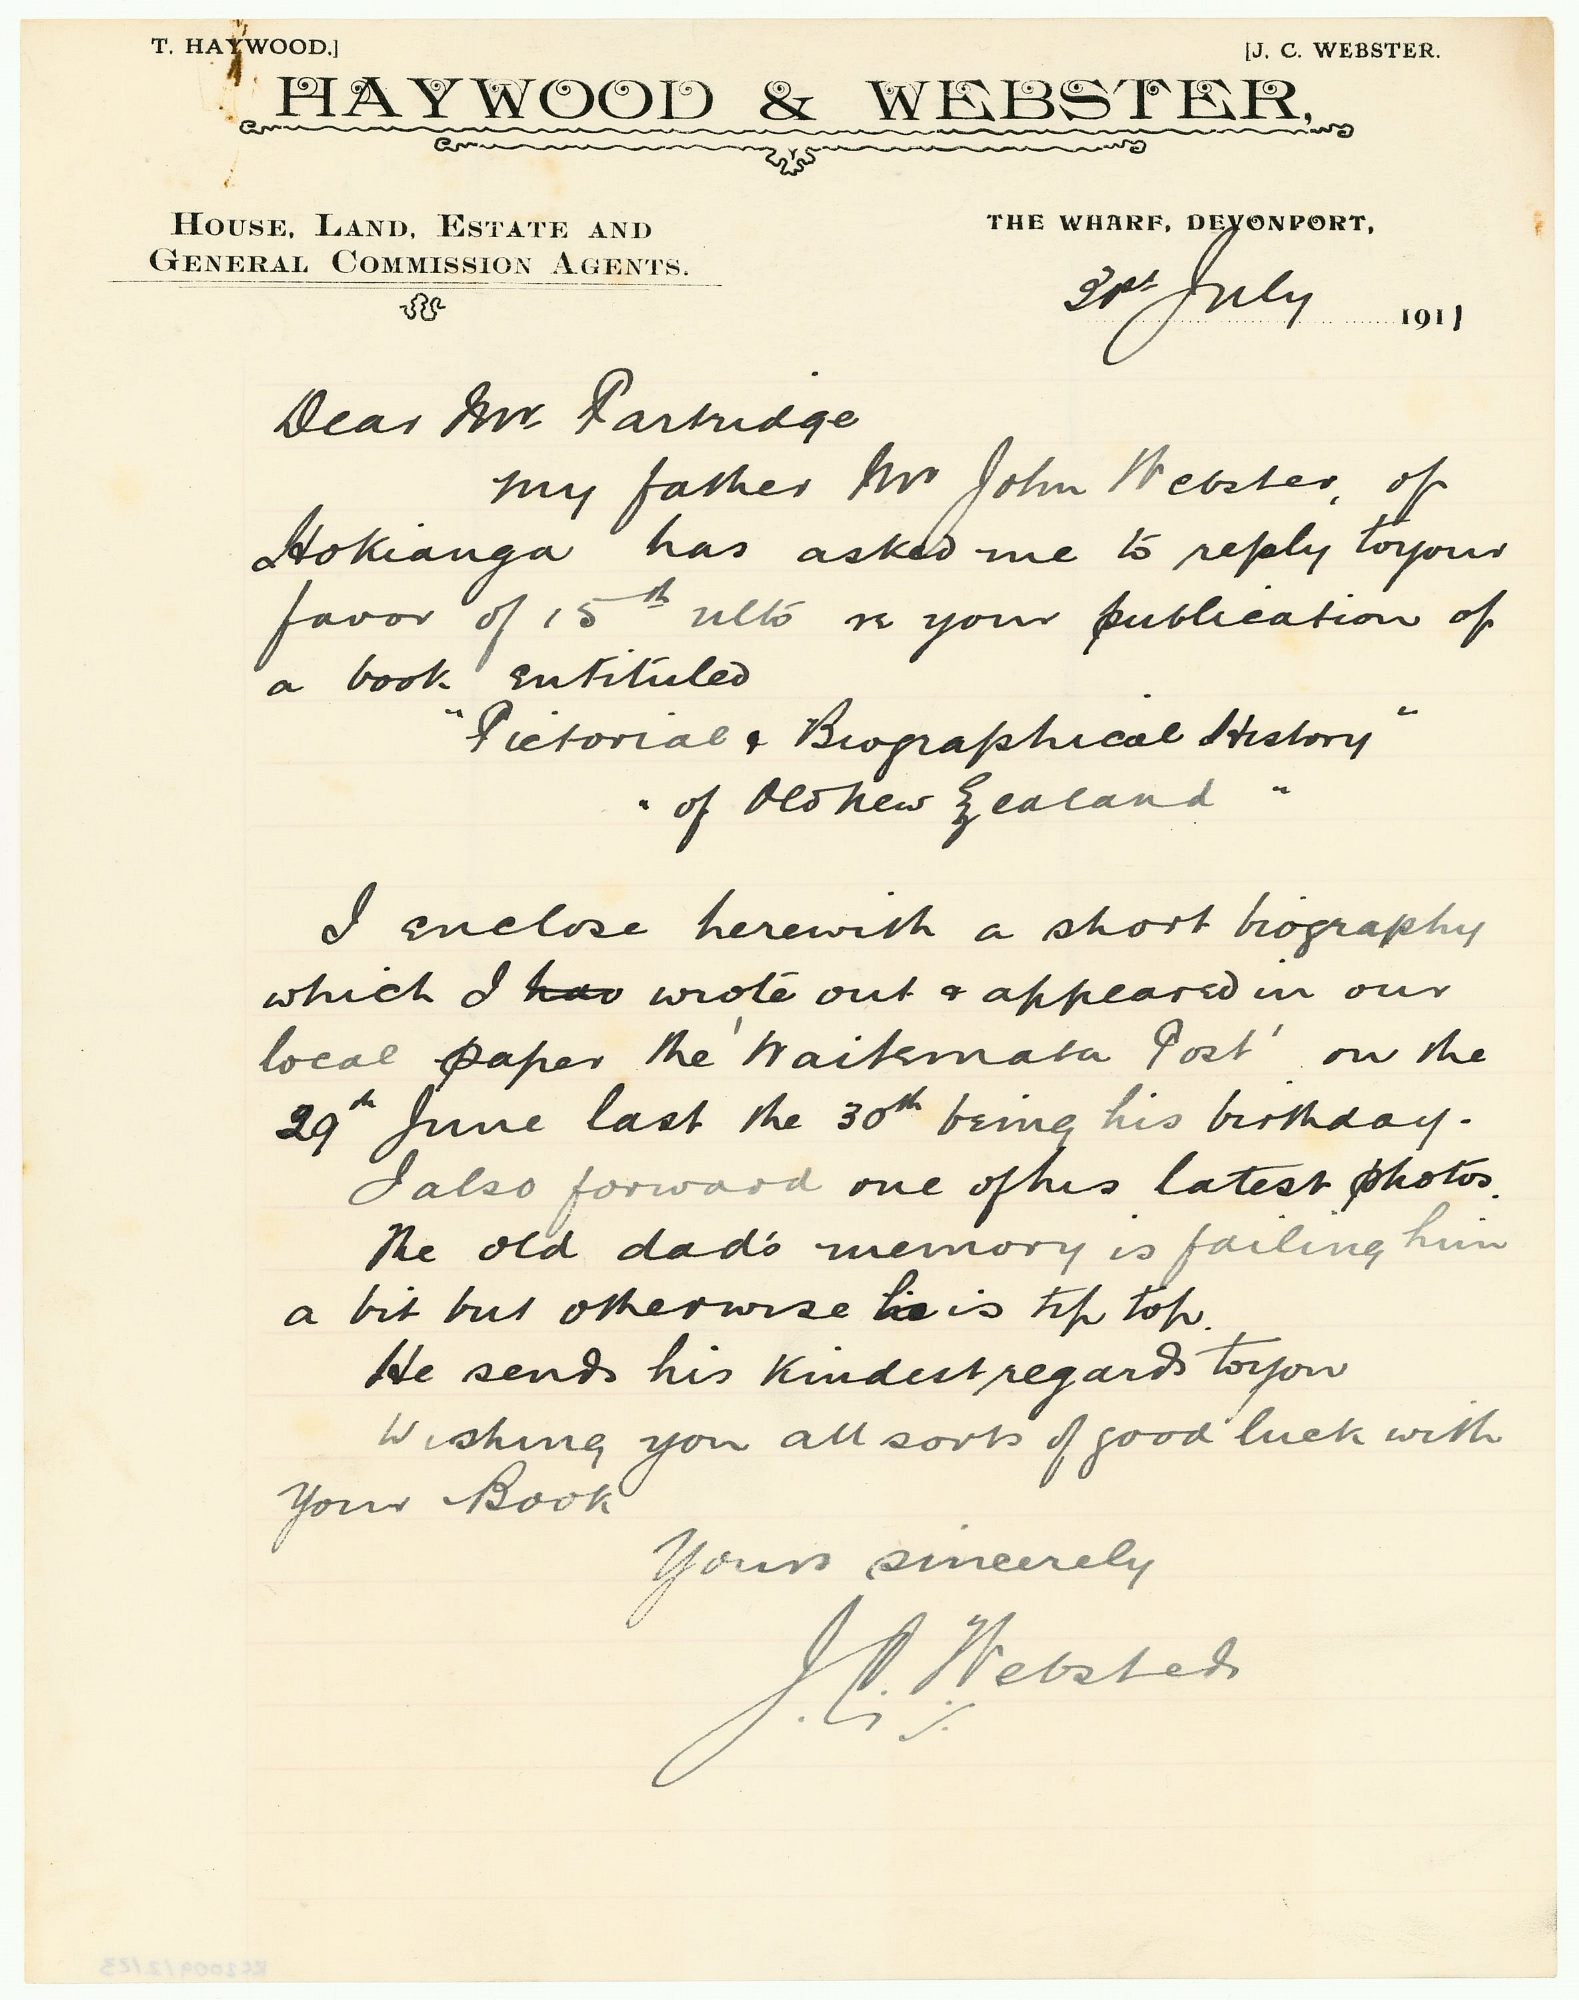 T. HAYWOOD.]
[J. C. WEBSTER.
HAYWOOD & WEBSTER,
HOUSE, LAND, ESTATE AND
GENERAL COMMISSION AGENTS.
THE WHARF, DEVONPORT,
31st July 1911
Dear Mr Partridge
my father Mr John Webster, of
Hokianga has asked me to reply to your
favor of 15th ulto re your publication of
a book entituled
"Pictorial & Biographical History"
" of Old New Zealand "
I enclose herewith a short biography
which I hav wrote out & appeared in our
local paper the 'Waitemata Post' on the
29th June last the 30th being his birthday.
I also forward one of his latest photos.
The old dad's memory is failing him
a bit but otherwise he is tip top.
He sends his kindest regards to you
Wishing you all sorts of good luck with
your Book
Yours sincerely
J. C. Webster